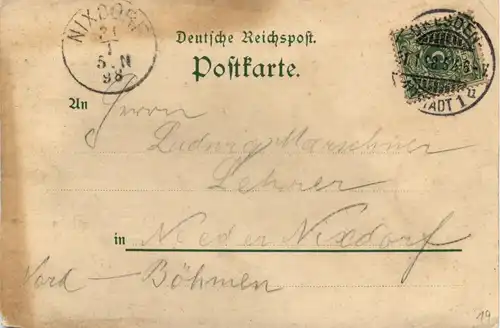 NIXDORF
21
1
5. N
98
Deutsche Reichspost.
Postkarte.
DRESDEN
ALTSTADT 1 u
An Herrn
Ludwig Marschner
Lehrer
in Nieder Nixdorf
Nord - Böhmen
19